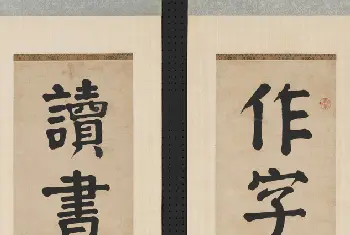 作字
讀書